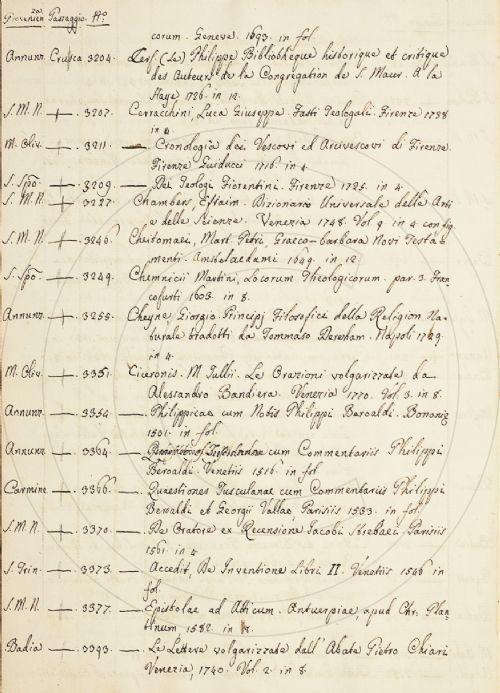 Provenien.za Passaggio. N.o
corum. Genevæ. 1693. in fol.
Annunz. Crusca 3204. Cerf (Le) Philippe Bibliotheque historique et critique
des Auteurs de la Congregation de S. Maur. A la
Haye 1726 in 12.
S. M. N. — 3207. Cerracchini, Luca Giuseppe. Fasti Teologali. Firenze 1738
in 4.
M. Oliv. — 3211. — Cronologia dei Vescovi ed Arcivescovi di Firenze.
Firenze Guiducci 1716. in 4.
S. Spo — 3209. — Dei Teologi Fiorentini. Firenze 1725. in 4.
S. M. N. — 3227. Chambers, Efraim. Dizionario Universale delle Arti
e delle Scienze. Venezia 1748. Vol. 9. in 4. con fig.
S. M. N. — 3246. Cheitomaei, Mart. Petri, Graeco-barbara Novi Testa=
menti. Amstelaedami 1649. in 12.
S. Spo — 3249. Chemnicii Martini, Locorum Theologicorum. par. 3. Fran=
cofurti 1603. in 8.
Annunz. — 3255. Cheyne, Giorgio. Principj Filosofici della Religion Na=
turale tradotti da Tommaso Dereham. Napoli 1729.
in 4.
M. Oliv. — 3351. Ciceronis. M. Tullii. Le Orazioni volgarizzate da
Alessandro Bandiera. Venezia 1770. Vol. 3. in 8.
Annunz. — 3354. — Philippicae cum Notis Philippi Beroaldi. Bononiæ
1501. in fol.
Annunz. — 3364. — cum Commentariis Philippi
Beroaldi. Venetiis 1516. in fol.
Carmine — 3366. — Quaestiones Tusculanae cum Commentariis Philippi
Beroaldi et Georgii Vallae, Parisiis 1533. in fol.
S. M. N. — 3370. — De Oratore ex Recensione Jacobi Strebaei, Parisiis
1561. in 4.
S. Trin. — 3373. — Accedit, De Inventione Libri II. Venetiis 1546 in
fol.
S. M. N. — 3377. — Epistolae ad Atticum. Antuerpiae, apud Chr. Plan=
tinum 1582. in
Badia — 3393. — Le Lettere volgarizzate dall' Abate Pietro Chiari
Venezia, 1740. Vol. 2. in 8.